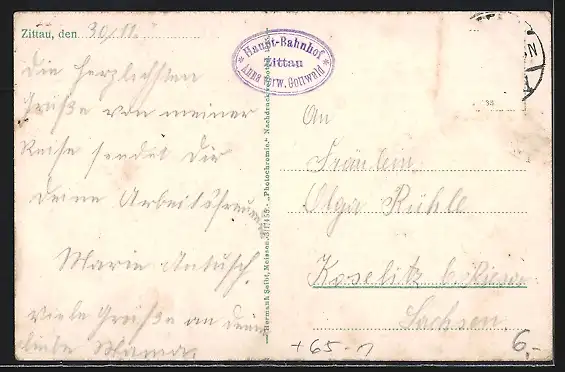 Zittau, den 30/11.
* Haupt-Bahnhof *
Zittau
Anna verw. Gottwald
Die herzlichsten
Grüße von meiner
Reise sendet Dir
deine Arbeitsfreundin
Marie Antusch.
Viele Grüße an deine
liebe Mama.
Hermann Seibt, Meissen. 311459. „Photochromie.“ Nachdruck verboten.
An
Fräulein
Olga Rühle
Koselitz b. Riesa
Sachsen.
+65
6,-